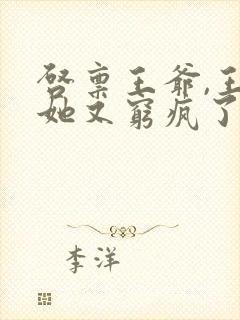 启禀王爷,王
她又窮疯了
李洋